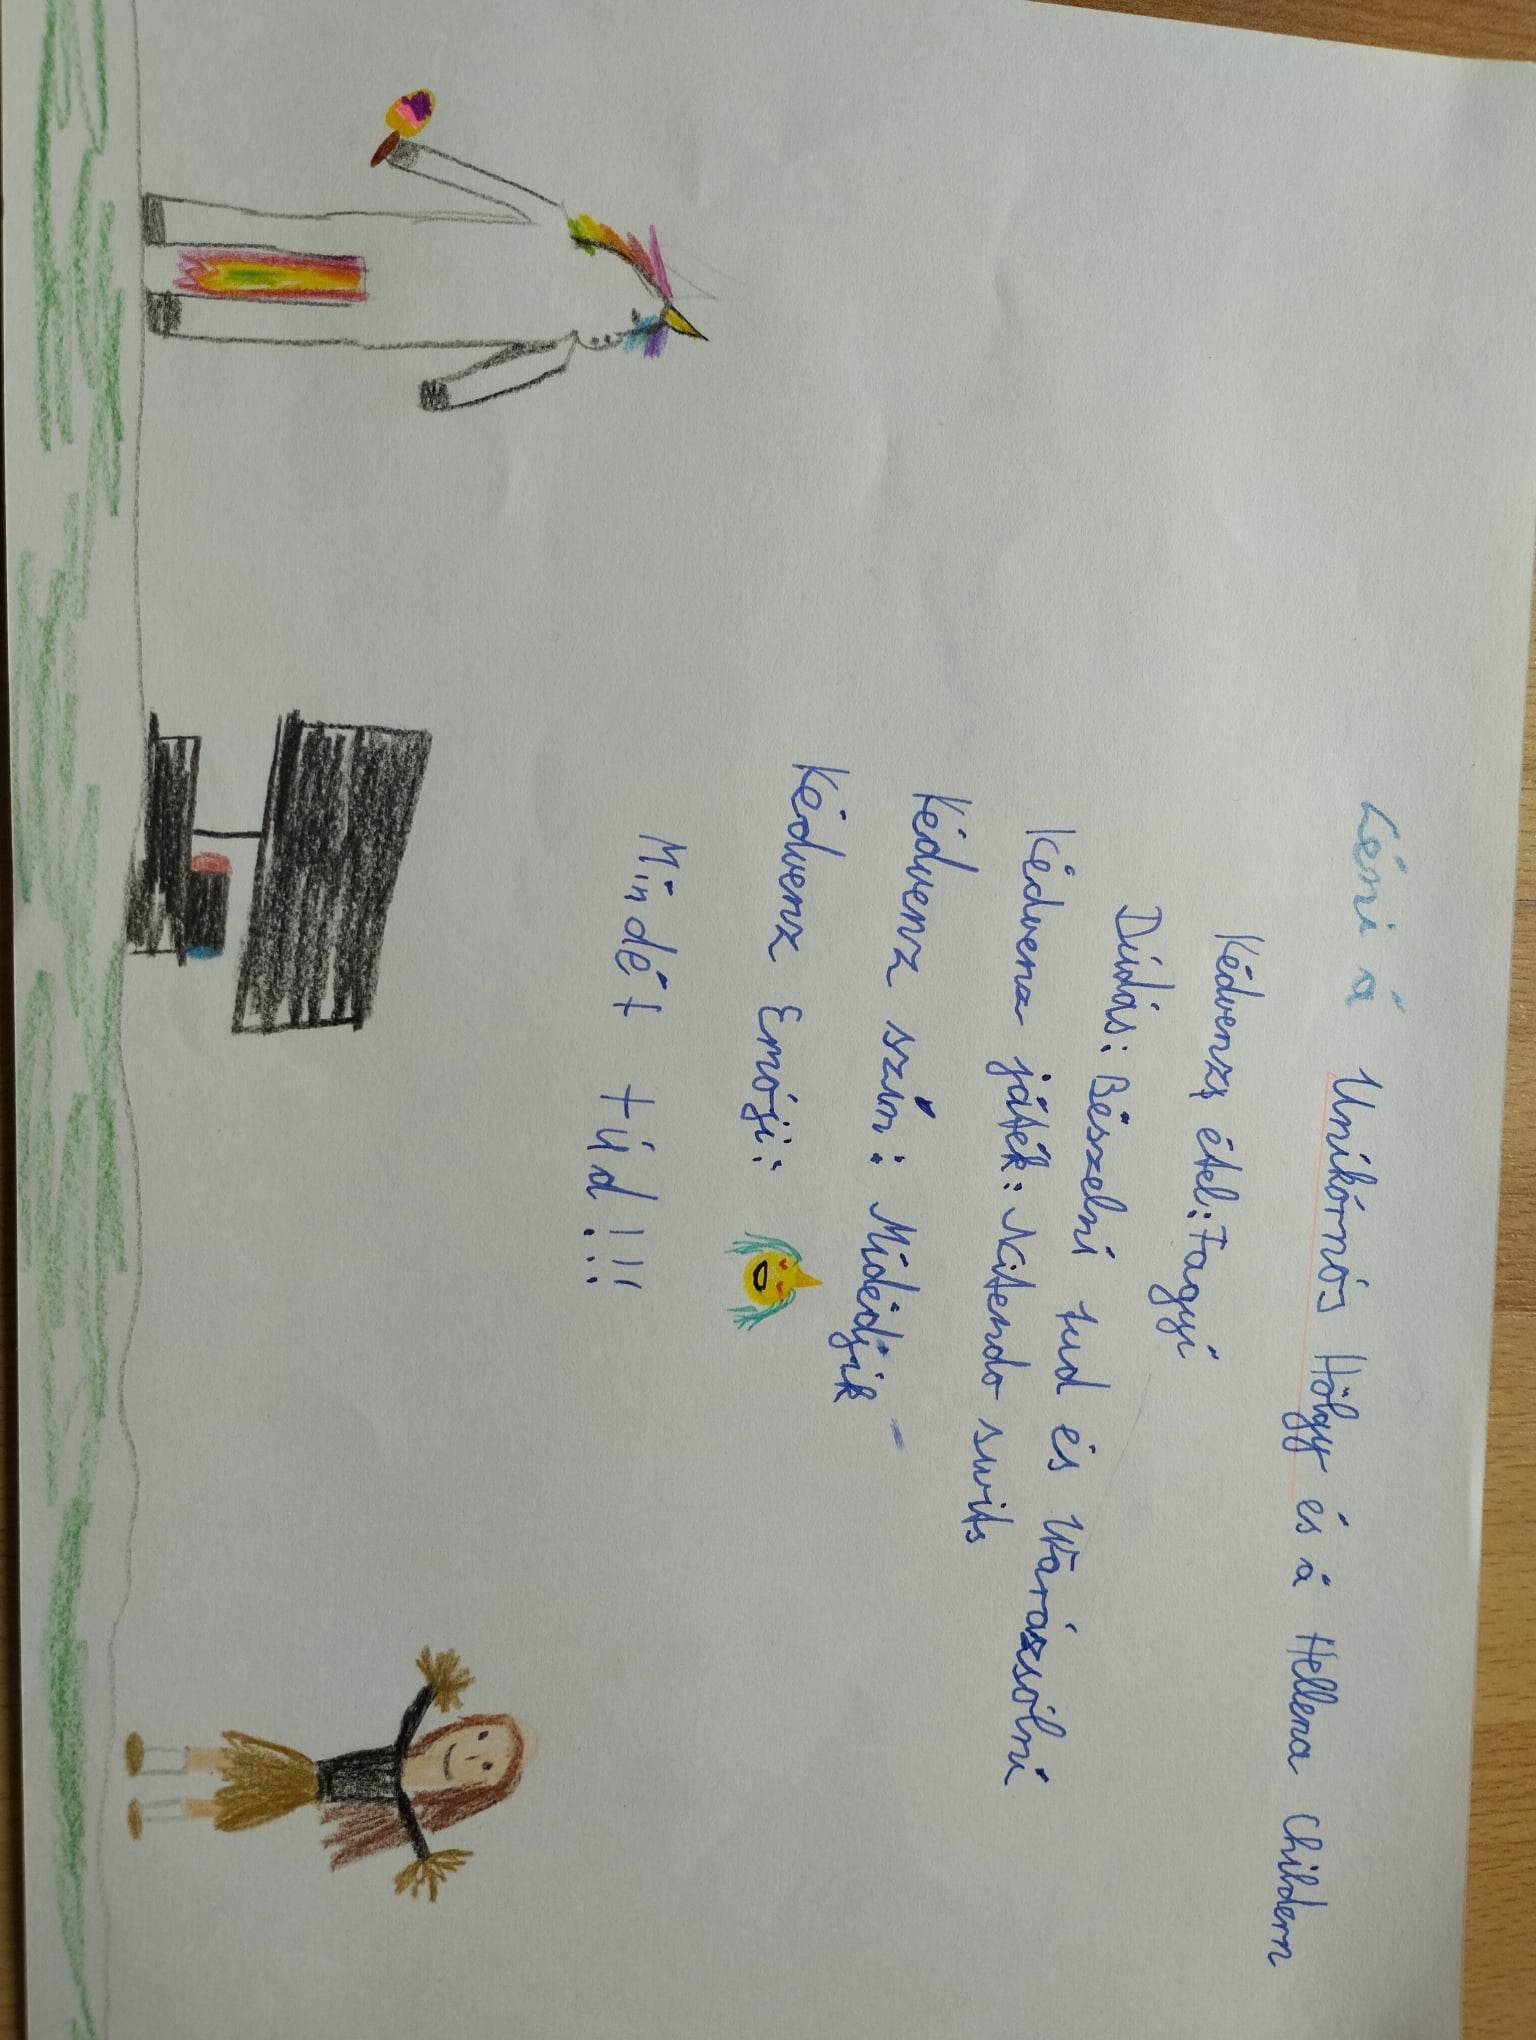 Léni á Unikórnós Hölgy és á Hellena Childern
Kédvenz étel: Fagyi
Dúdás: Bészelni tud és Wárázsólni
Kédvenz játék: Nitendo swits
Kédvenz szín: Midédjik
Kédvenz Emóji:
Mindét túd!!!